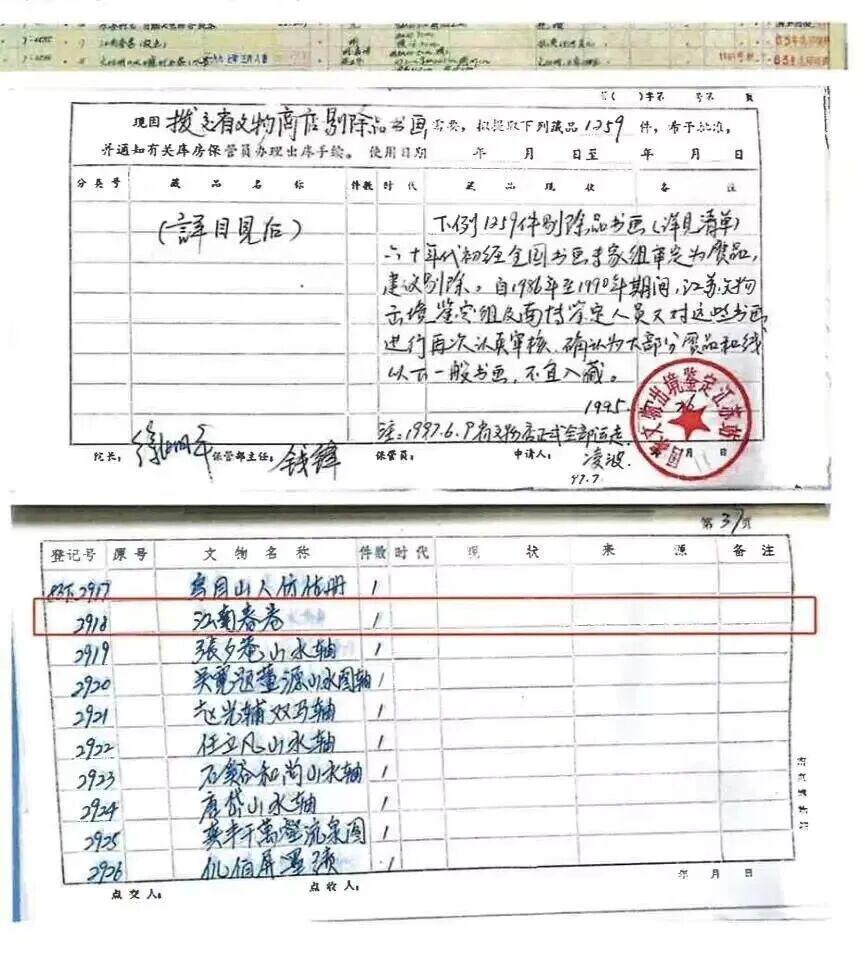 江南春卷
字第 号第 页
现因拨交省文物商店剔除品书画需要，拟提取下列藏品1259件，希予批准，
并通知有关库房保管员办理出库手续。使用日期 年 月 日至 年 月 日
分类号 藏品名称 件数 时代 藏品现状 备注
(詳目见后)
下列1259件剔除品书画(详见清单)
六十年代初经全国书画专家组审定为赝品，
建议剔除。自1986年至1990年期间，江苏文物
出境鉴定组及南博鉴定人员又对这些书画
进行再次认真审核，确认为大部分赝品和线
以下一般书画，不宜入藏。
1995. 26
注：1997.6.9省文物店正式全部运走
院长：徐湖平 保管部主任：钱锋 保管员： 申请人：凌波 月 日
97.7.
国家文物出境鉴定江苏站
第37页
登记号 原号 文物名称 件数 时代 现状 来源 备注
2917 乌目山人仿古册 1
2918 江南春卷 1
2919 張夕菴山水轴 1
2920 吴寛题董源山水图轴 1
2921 赵光辅双马轴 1
2922 任立凡山水轴 1
2923 石溪和尚山水轴 1
2924 唐岱山水轴 1
2925 奕丰千萬壑流泉图 1
2926 仇伯屏墨蹟 1
点交人： 点收人： 年 月 日